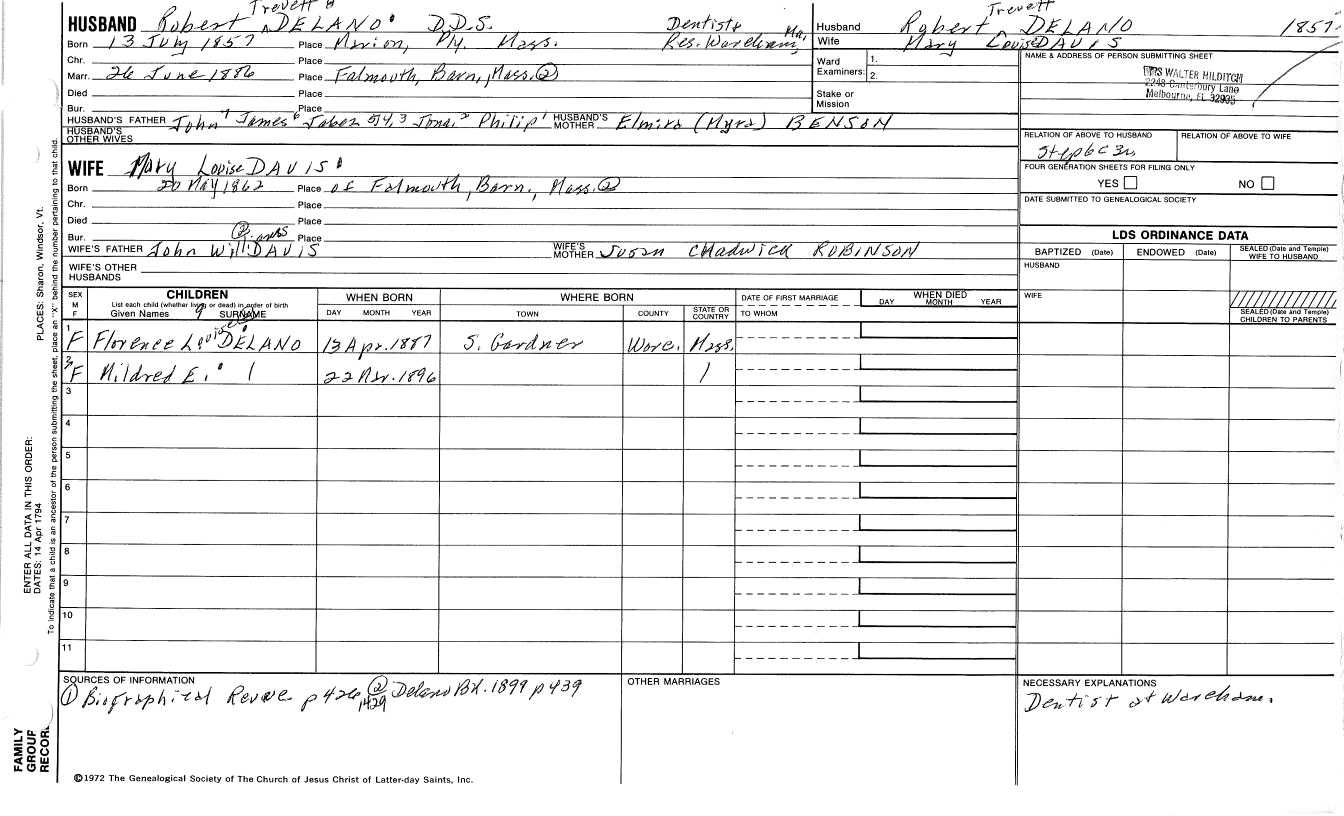 Trevett
HUSBAND Robert ^ DELANO D.D.S. Dentist
Born 13 July 1857 Place Marion, Ply. Mass. Res. Wareham, Ma.
Chr. Place
Marr. 26 June 1886 Place Falmouth, Barn., Mass. ②
Died Place
Bur. Place
HUSBAND'S FATHER John 7 James 6 Jabez 5,4,3 Jona. 2 Philip 1 HUSBAND'S MOTHER Elmira (Myra) BENSON
HUSBAND'S OTHER WIVES
WIFE Mary Louise DAVIS
Born 20 May 1862 Place of Falmouth, Barn., Mass. ②
Chr. Place
Died Place
Bur. Place
WIFE'S FATHER John Will DAVIS WIFE'S MOTHER Susan Chadwick ROBINSON
WIFE'S OTHER HUSBANDS
Trevett
Husband Robert ^ DELANO 1857
Wife Mary Louise DAVIS
Ward Examiners: 1.
2.
Stake or Mission
NAME & ADDRESS OF PERSON SUBMITTING SHEET
MRS WALTER HILDITCH
2248 Canterbury Lane
Melbourne, FL 32935
RELATION OF ABOVE TO HUSBAND RELATION OF ABOVE TO WIFE
Step 6C 3R
FOUR GENERATION SHEETS FOR FILING ONLY
YES NO
DATE SUBMITTED TO GENEALOGICAL SOCIETY
LDS ORDINANCE DATA
BAPTIZED (Date) ENDOWED (Date) SEALED (Date and Temple) WIFE TO HUSBAND
HUSBAND
WIFE
SEALED (Date and Temple) CHILDREN TO PARENTS
SEX M F CHILDREN WHEN BORN WHERE BORN DATE OF FIRST MARRIAGE WHEN DIED
List each child (whether living or dead) in order of birth
Given Names SURNAME DAY MONTH YEAR TOWN COUNTY STATE OR COUNTRY TO WHOM DAY MONTH YEAR
1 F Florence Louise DELANO 13 Apr. 1887 S. Gardner Worc. Mass.
2 F Mildred E. 22 Mar. 1896
3
4
5
6
7
8
9
10
11
SOURCES OF INFORMATION
① Biographical Revue p 426 ② Delano Bk. 1899 p 439
1429
OTHER MARRIAGES
NECESSARY EXPLANATIONS
Dentist at Wareham.
©1972 The Genealogical Society of The Church of Jesus Christ of Latter-day Saints, Inc.
FAMILY GROUP RECORD
ENTER ALL DATA IN THIS ORDER:
DATES: 14 Apr 1794
PLACES: Sharon, Windsor, Vt.
To indicate that a child is an ancestor of the person submitting the sheet, place an "X" behind the number pertaining to that child.